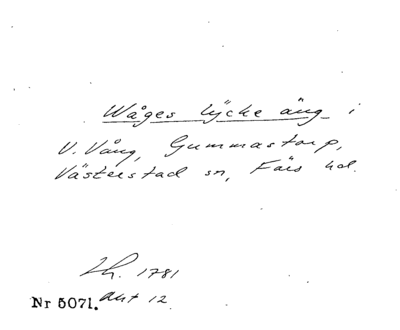 Wåges lÿcke äng i
V. Vång, Gummastorp,
Västerstad sn, Färs hd.
Lh. 1781
Nr 5071. akt 12.